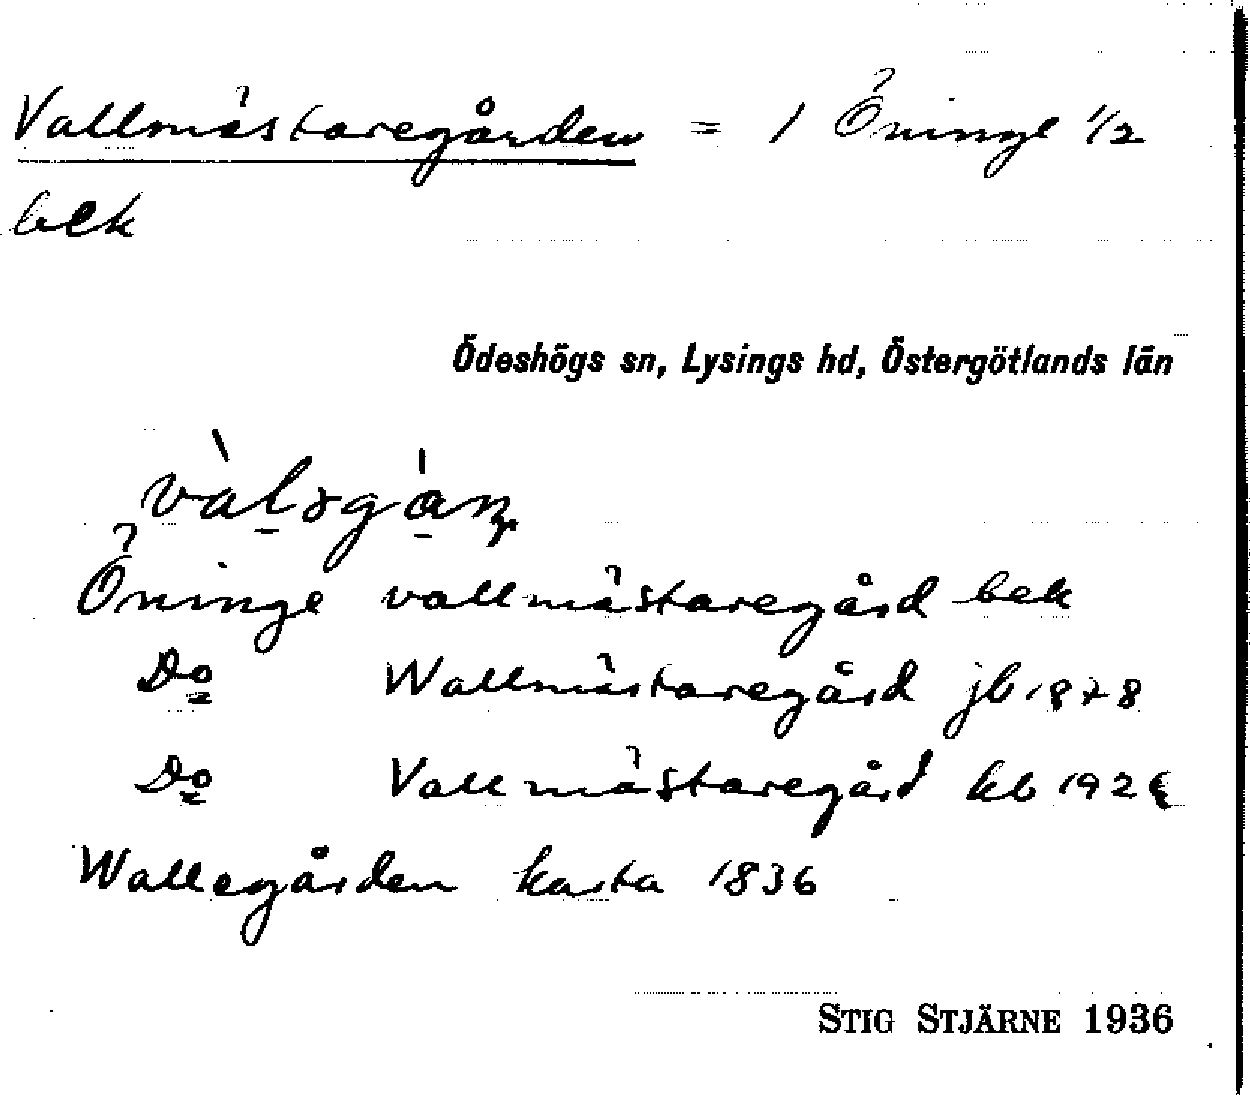 Vallmästaregården = 1 Öninge 1/2
bek
Ödeshögs sn, Lysings hd, Östergötlands län
Öninge vallmästaregård bek
Do Wallmästaregård jb 1878
Do Vallmästaregård kb
Wallegården karta 1836
STIG STJÄRNE 1936